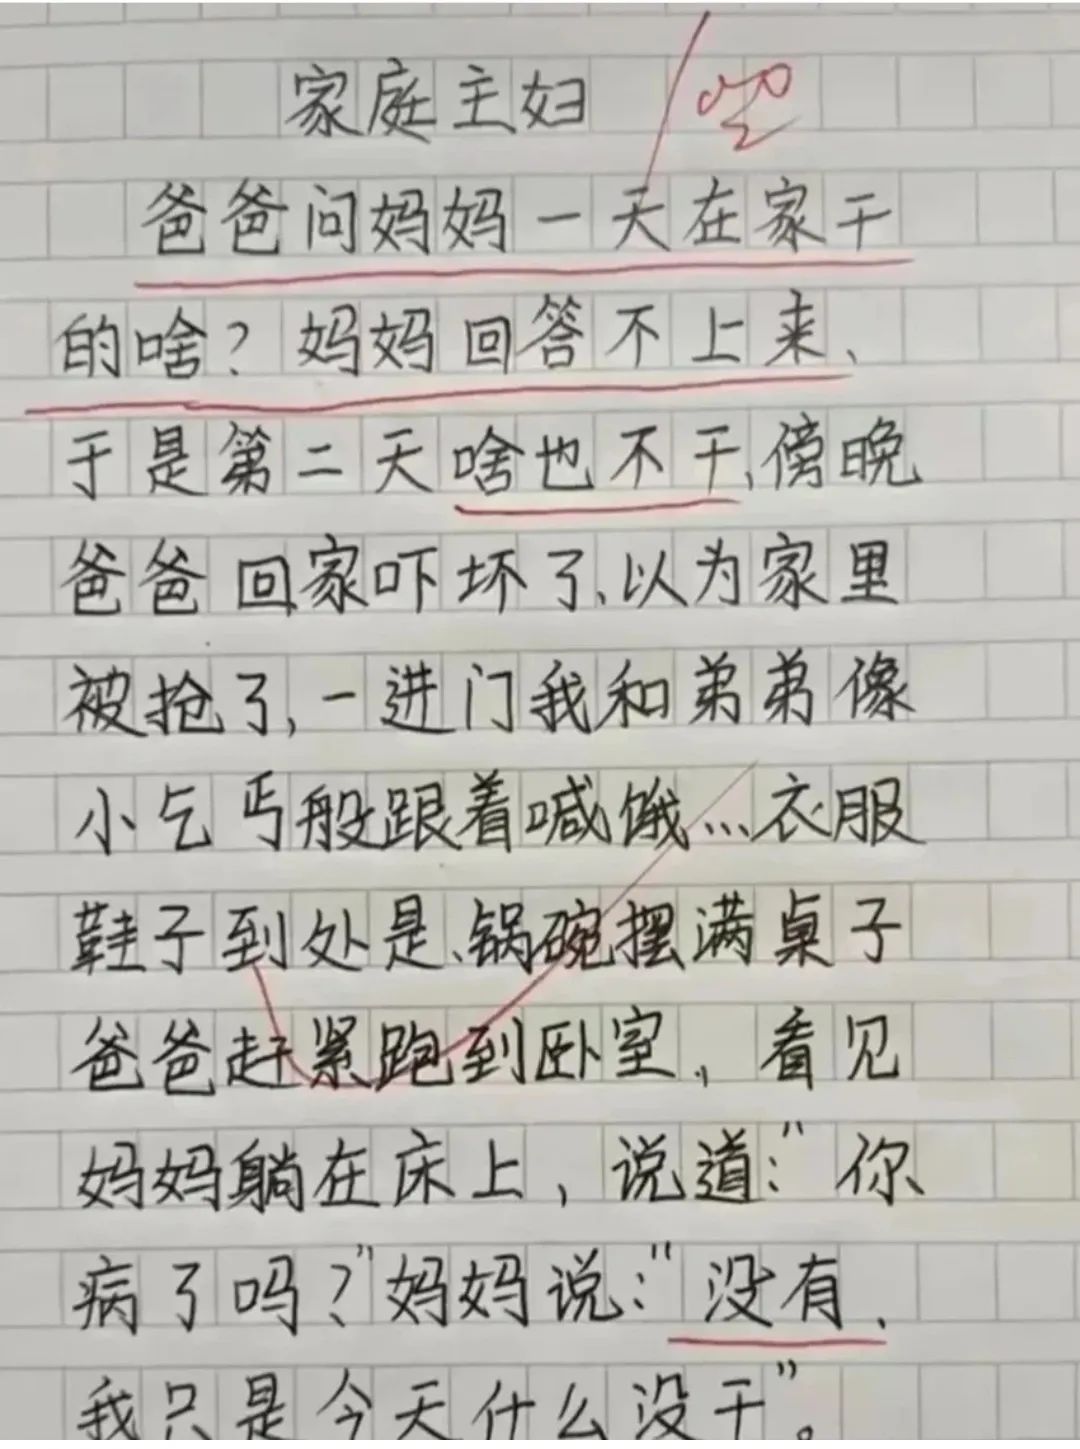 家庭主妇
爸爸问妈妈一天在家干
的啥？妈妈回答不上来、
于是第二天啥也不干、傍晚
爸爸回家吓坏了、以为家里
被抢了，一进门我和弟弟像
小乞丐般跟着喊饿…衣服
鞋子到处是、锅碗摆满桌子
爸爸赶紧跑到卧室，看见
妈妈躺在床上，说道：“你
病了吗？”妈妈说：“没有、
我只是今天什么没干”。